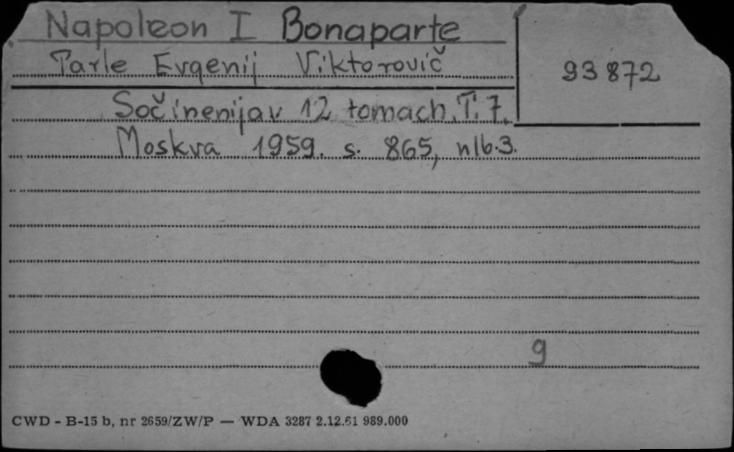 Napoleon I Bonaparte
Tarle Evgenij Viktorovič
93 872
Sočinenija v 12 tomach. T. 7.
Moskva 1959. s. 865, nlb. 3.
9
CWD - B-15 b, nr 2659/ZW/P — WDA 3287 2.12.61 989.000